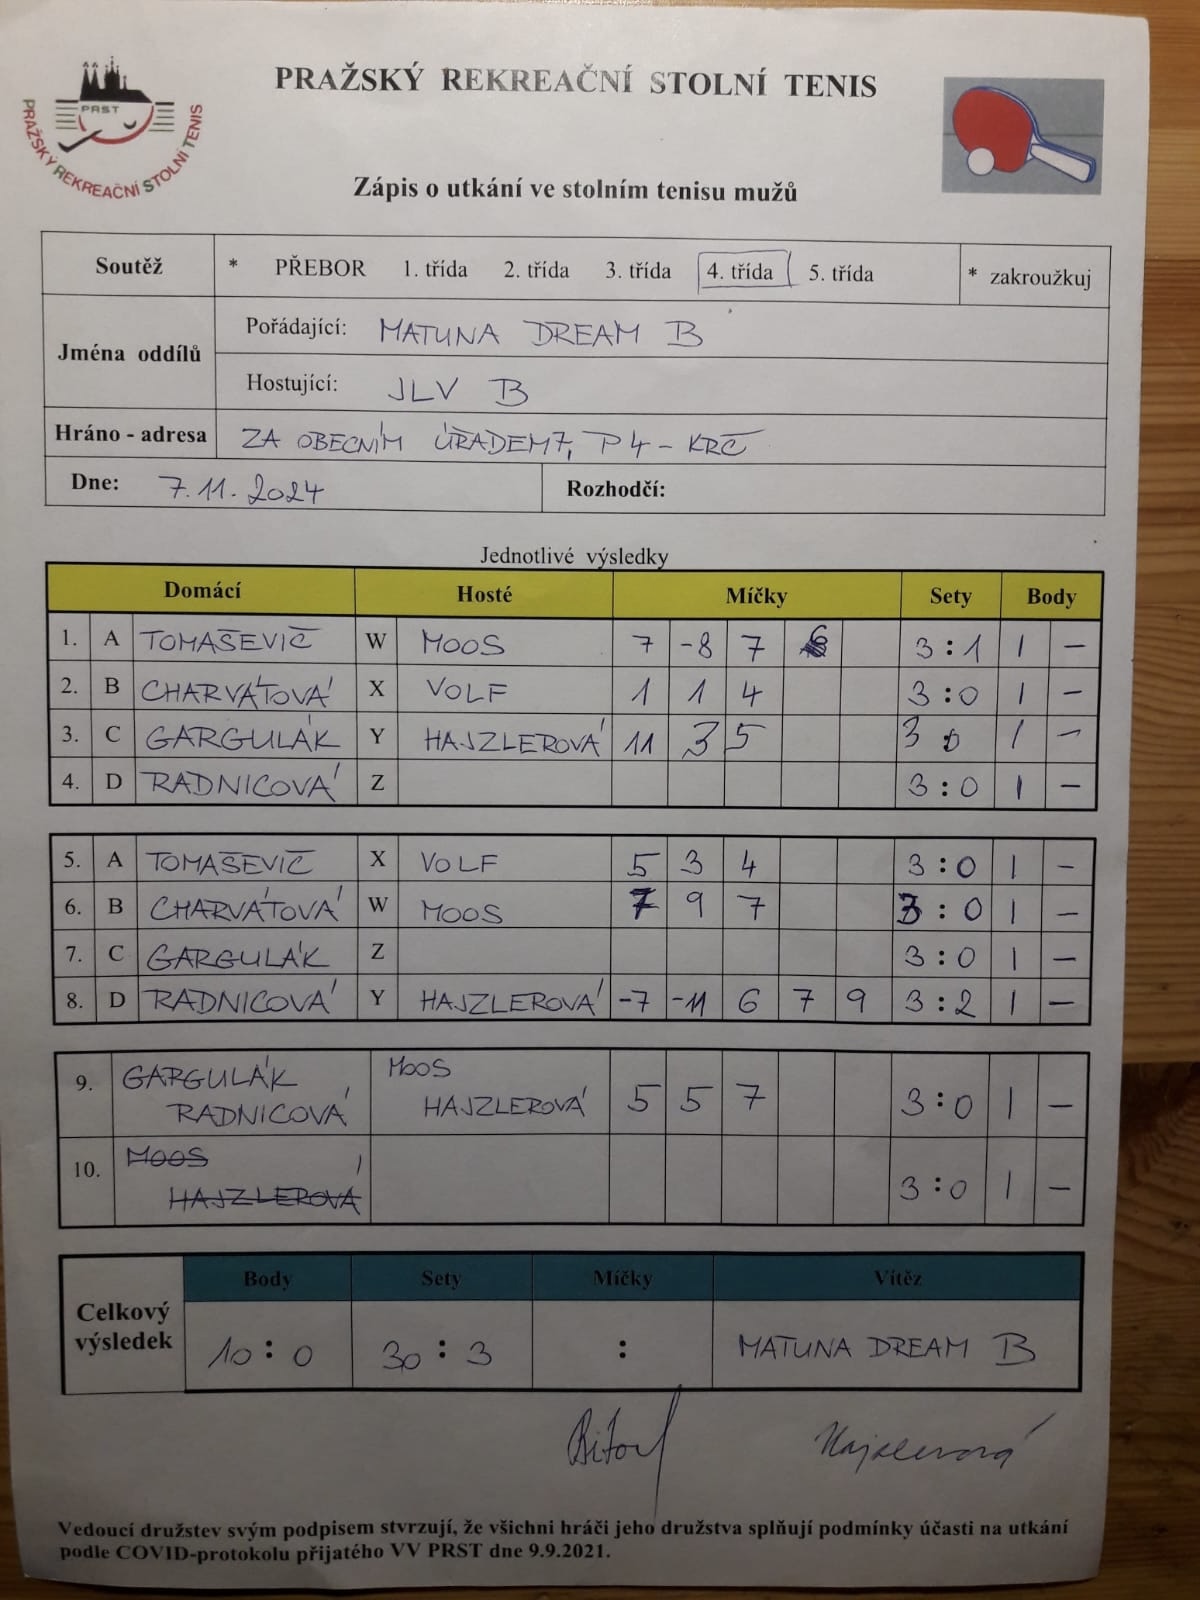 PRAŽSKÝ REKREAČNÍ STOLNÍ TENIS
PRST
PRAŽSKÝ REKREAČNÍ STOLNÍ TENIS
Zápis o utkání ve stolním tenisu mužů
Soutěž * PŘEBOR 1. třída 2. třída 3. třída 4. třída 5. třída * zakroužkuj
Jména oddílů
Pořádající: MATUNA DREAM B
Hostující: JLV B
Hráno - adresa ZA OBECNÍM ÚŘADEM 7, P4 - KRČ
Dne: 7.11.2024 Rozhodčí:
Jednotlivé výsledky
Domácí Hosté Míčky Sety Body
1. A TOMAŠEVIČ W MOOS 7 -8 7 6 3:1 1 -
2. B CHARVÁTOVÁ X VOLF 1 1 4 3:0 1 -
3. C GARGULÁK Y HAJZLEROVÁ 11 3 5 3 0 1 -
4. D RADNICOVÁ Z 3:0 1 -
5. A TOMAŠEVIČ X VOLF 5 3 4 3:0 1 -
6. B CHARVÁTOVÁ W MOOS 7 9 7 3:0 1 -
7. C GARGULÁK Z 3:0 1 -
8. D RADNICOVÁ Y HAJZLEROVÁ -7 -11 6 7 9 3:2 1 -
9. GARGULÁK MOOS
RADNICOVÁ HAJZLEROVÁ 5 5 7 3:0 1 -
10. MOOS
HAJZLEROVÁ 3:0 1 -
Celkový výsledek
Body Sety Míčky Vítěz
10:0 30:3 : MATUNA DREAM B
Hajzlerová
Vedoucí družstev svým podpisem stvrzují, že všichni hráči jeho družstva splňují podmínky účasti na utkání
podle COVID-protokolu přijatého VV PRST dne 9.9.2021.